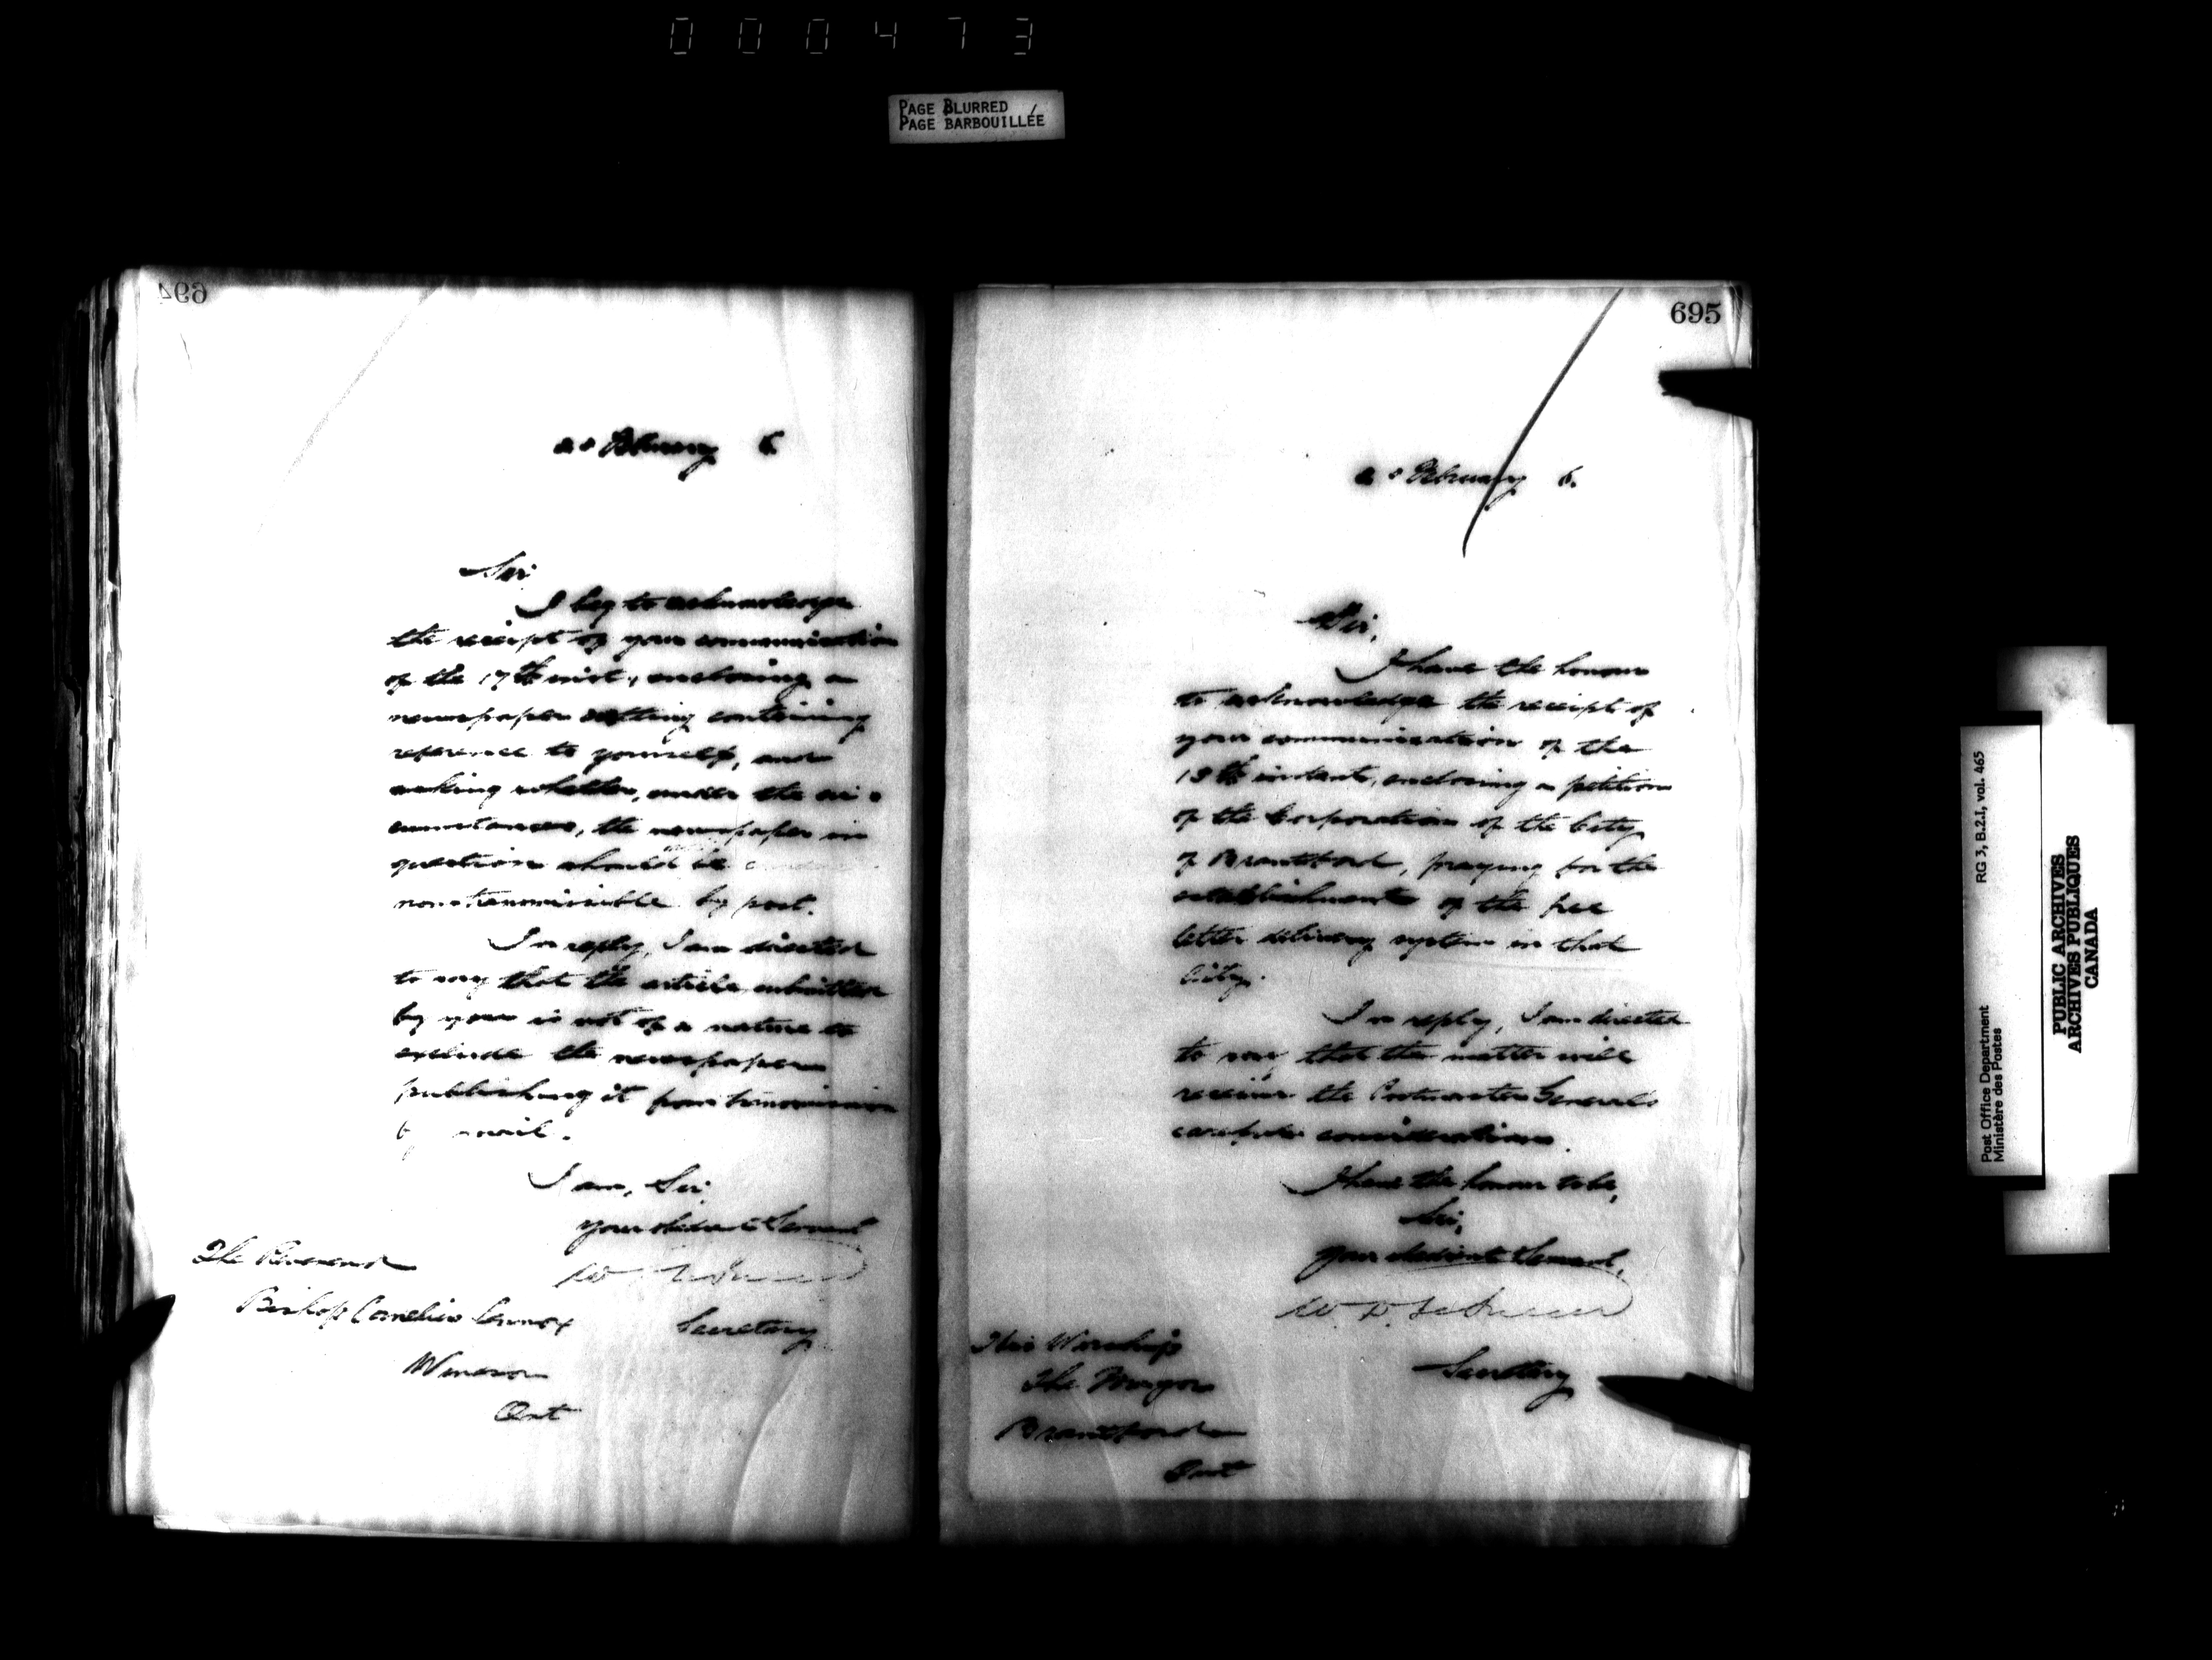 000473
PAGE BLURRED
PAGE BARBOUILLÉE
694
February 6
Sir
I beg to acknowledge
the receipt of your communication
of the 17th inst., enclosing a
newspaper cutting containing
reference to yourself, and
asking whether, under the cir-
cumstances, the newspaper in
question should be
non-transmissible by post.
In reply, I am directed
to say that the article submitted
by you is not of a nature to
exclude the newspaper
publishing it from transmission
by mail.
I am, Sir,
Your obedient Servant
Secretary
The Reverend
Bishop Cornelius Lennox
Windsor
Ont
695
February 6.
Sir,
I have the honour
to acknowledge the receipt of
your communication of the
instant, enclosing a petition
of the Corporation of the City
of Brantford, praying for the
establishment of the free
letter delivery system in that
City.
In reply, I am directed
to say that the matter will
receive the Postmaster General's
careful consideration.
I have the honour to be,
Sir,
Your obedient Servant,
Secretary
His Worship
The Mayor
Brantford
Ont
Post Office Department
Ministère des Postes
RG 3, B.2.I, vol. 465
PUBLIC ARCHIVES
ARCHIVES PUBLIQUES
CANADA